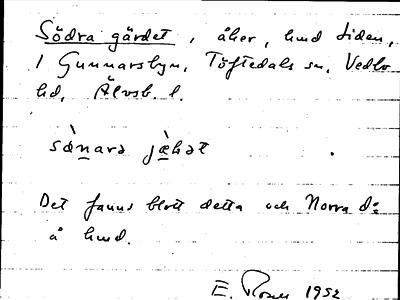 Södra gärdet, åker, hmd tiden,
1 Gunnarsbyn, Töftedals sn, Vedbo
hd, Älvsb. l.
sø̀nara jæ̀kət
Det fanns blott detta och Norra d:o
å hmd.
E. Rosen 1952